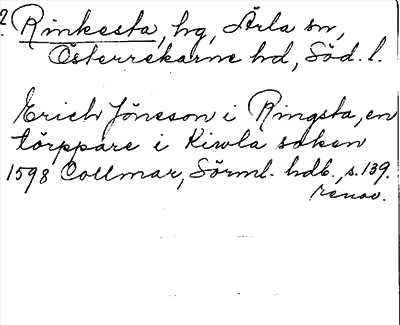 ? Rinkesta, hg, Ärla sn,
Österrekarne hd, Söd. l.
Erich Jöneson i Ringsta, en
törppare i Kiwla soken
1598 Collmar, Sörml. hdb., s. 139.
renov.